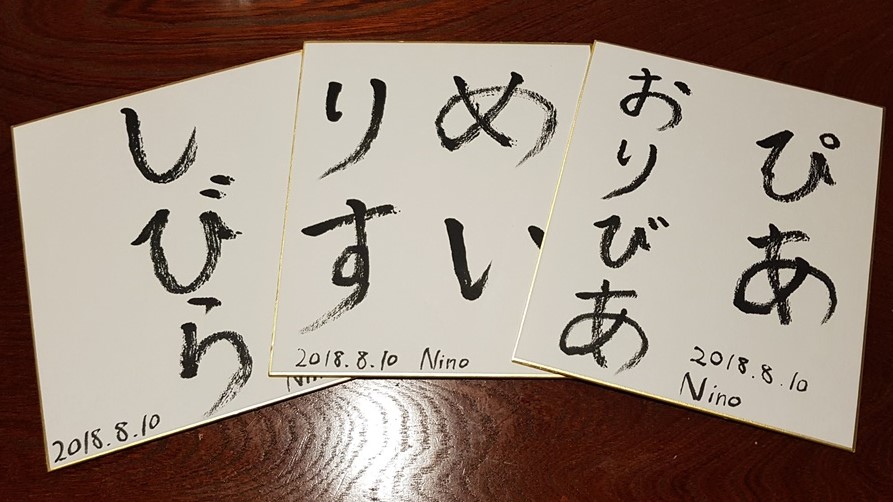 しびら
2018.8.10
めい
りす
2018.8.10 Nino
ぴあ
おりびあ
2018.8.10
Nino